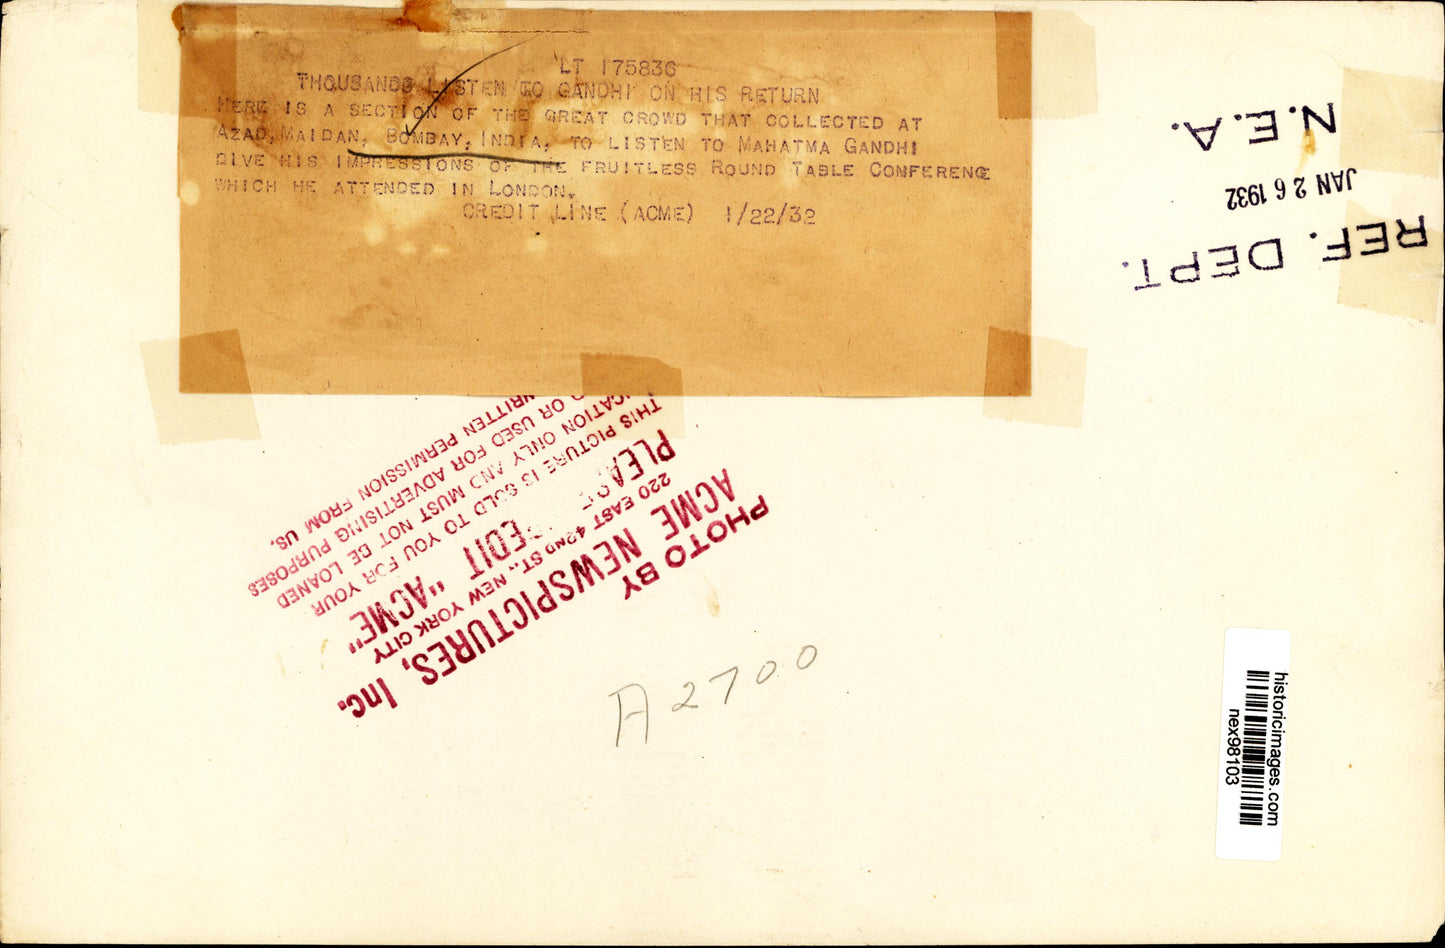 LT 175836
THOUSANDS LISTEN TO GANDHI ON HIS RETURN
HERE IS A SECTION OF THE GREAT CROWD THAT COLLECTED AT
AZAD, MAIDAN, BOMBAY, INDIA, TO LISTEN TO MAHATMA GANDHI
GIVE HIS IMPRESSIONS OF THE FRUITLESS ROUND TABLE CONFERENCE
WHICH HE ATTENDED IN LONDON.
CREDIT LINE (ACME) 1/22/32
REF. DEPT.
JAN 26 1932
N.E.A.
PHOTO BY
ACME NEWSPICTURES, Inc.
220 EAST 42ND ST., NEW YORK CITY
PLEASE CREDIT "ACME"
THIS PICTURE IS SOLD TO YOU FOR YOUR
ICATION ONLY AND MUST NOT BE LOANED
D OR USED FOR ADVERTISING PURPOSES
WRITTEN PERMISSION FROM US.
A2700
historicimages.com
nex98103